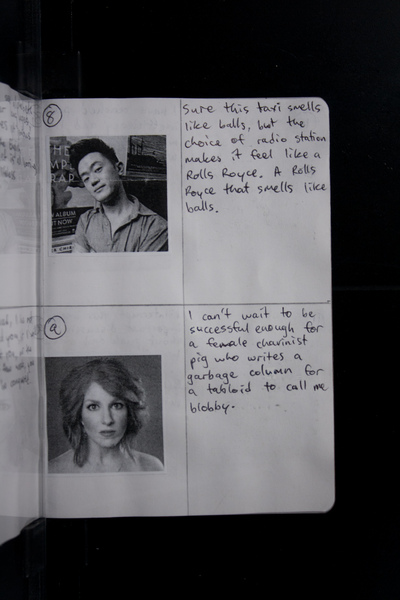 8
Sure this taxi smells
like balls, but the
choice of radio station
makes it feel like a
Rolls Royce. A Rolls
Royce that smells like
balls.
THE
ALBUM
OUT NOW
9
I can't wait to be
successful enough for
a female chavinist
pig who writes a
garbage column for
a tabloid to call me
blobby.